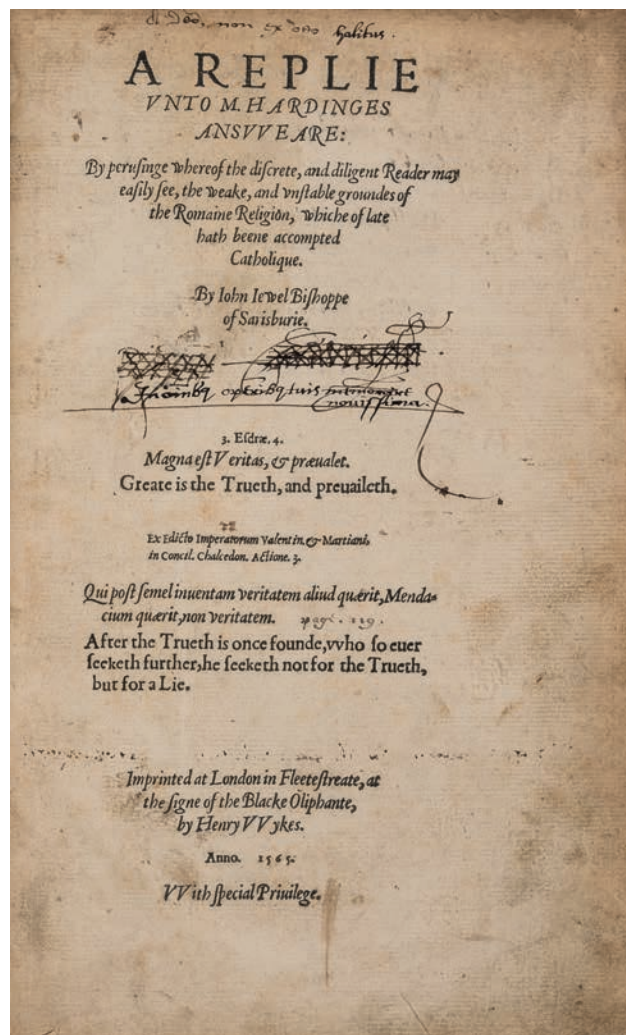 non ex
halitus.
A REPLIE
VNTO M. HARDINGES
ANSVVEARE:
By perusinge whereof the discrete, and diligent Reader may
easily see, the weake, and vnstable groundes of
the Romaine Religion, whiche of late
hath beene accompted
Catholique.
By Iohn Iewel Bishoppe
of Sarisburie.
operibq tuis
nouissima.
3. Esdræ. 4.
Magna est Veritas, & præualet.
Greate is the Trueth, and preuaileth.
Ex Edicto Imperatorum Valentin. & Martiani,
in Concil. Chalcedon. Actione. 3.
Qui post semel inuentam veritatem aliud quærit, Menda-
cium quærit, non veritatem. pagi. 119.
After the Trueth is once founde, vvho so euer
seeketh further, he seeketh not for the Trueth,
but for a Lie.
Imprinted at London in Fleetestreate, at
the signe of the Blacke Oliphante,
by Henry VVykes.
Anno. 1565.
VVith special Priuilege.